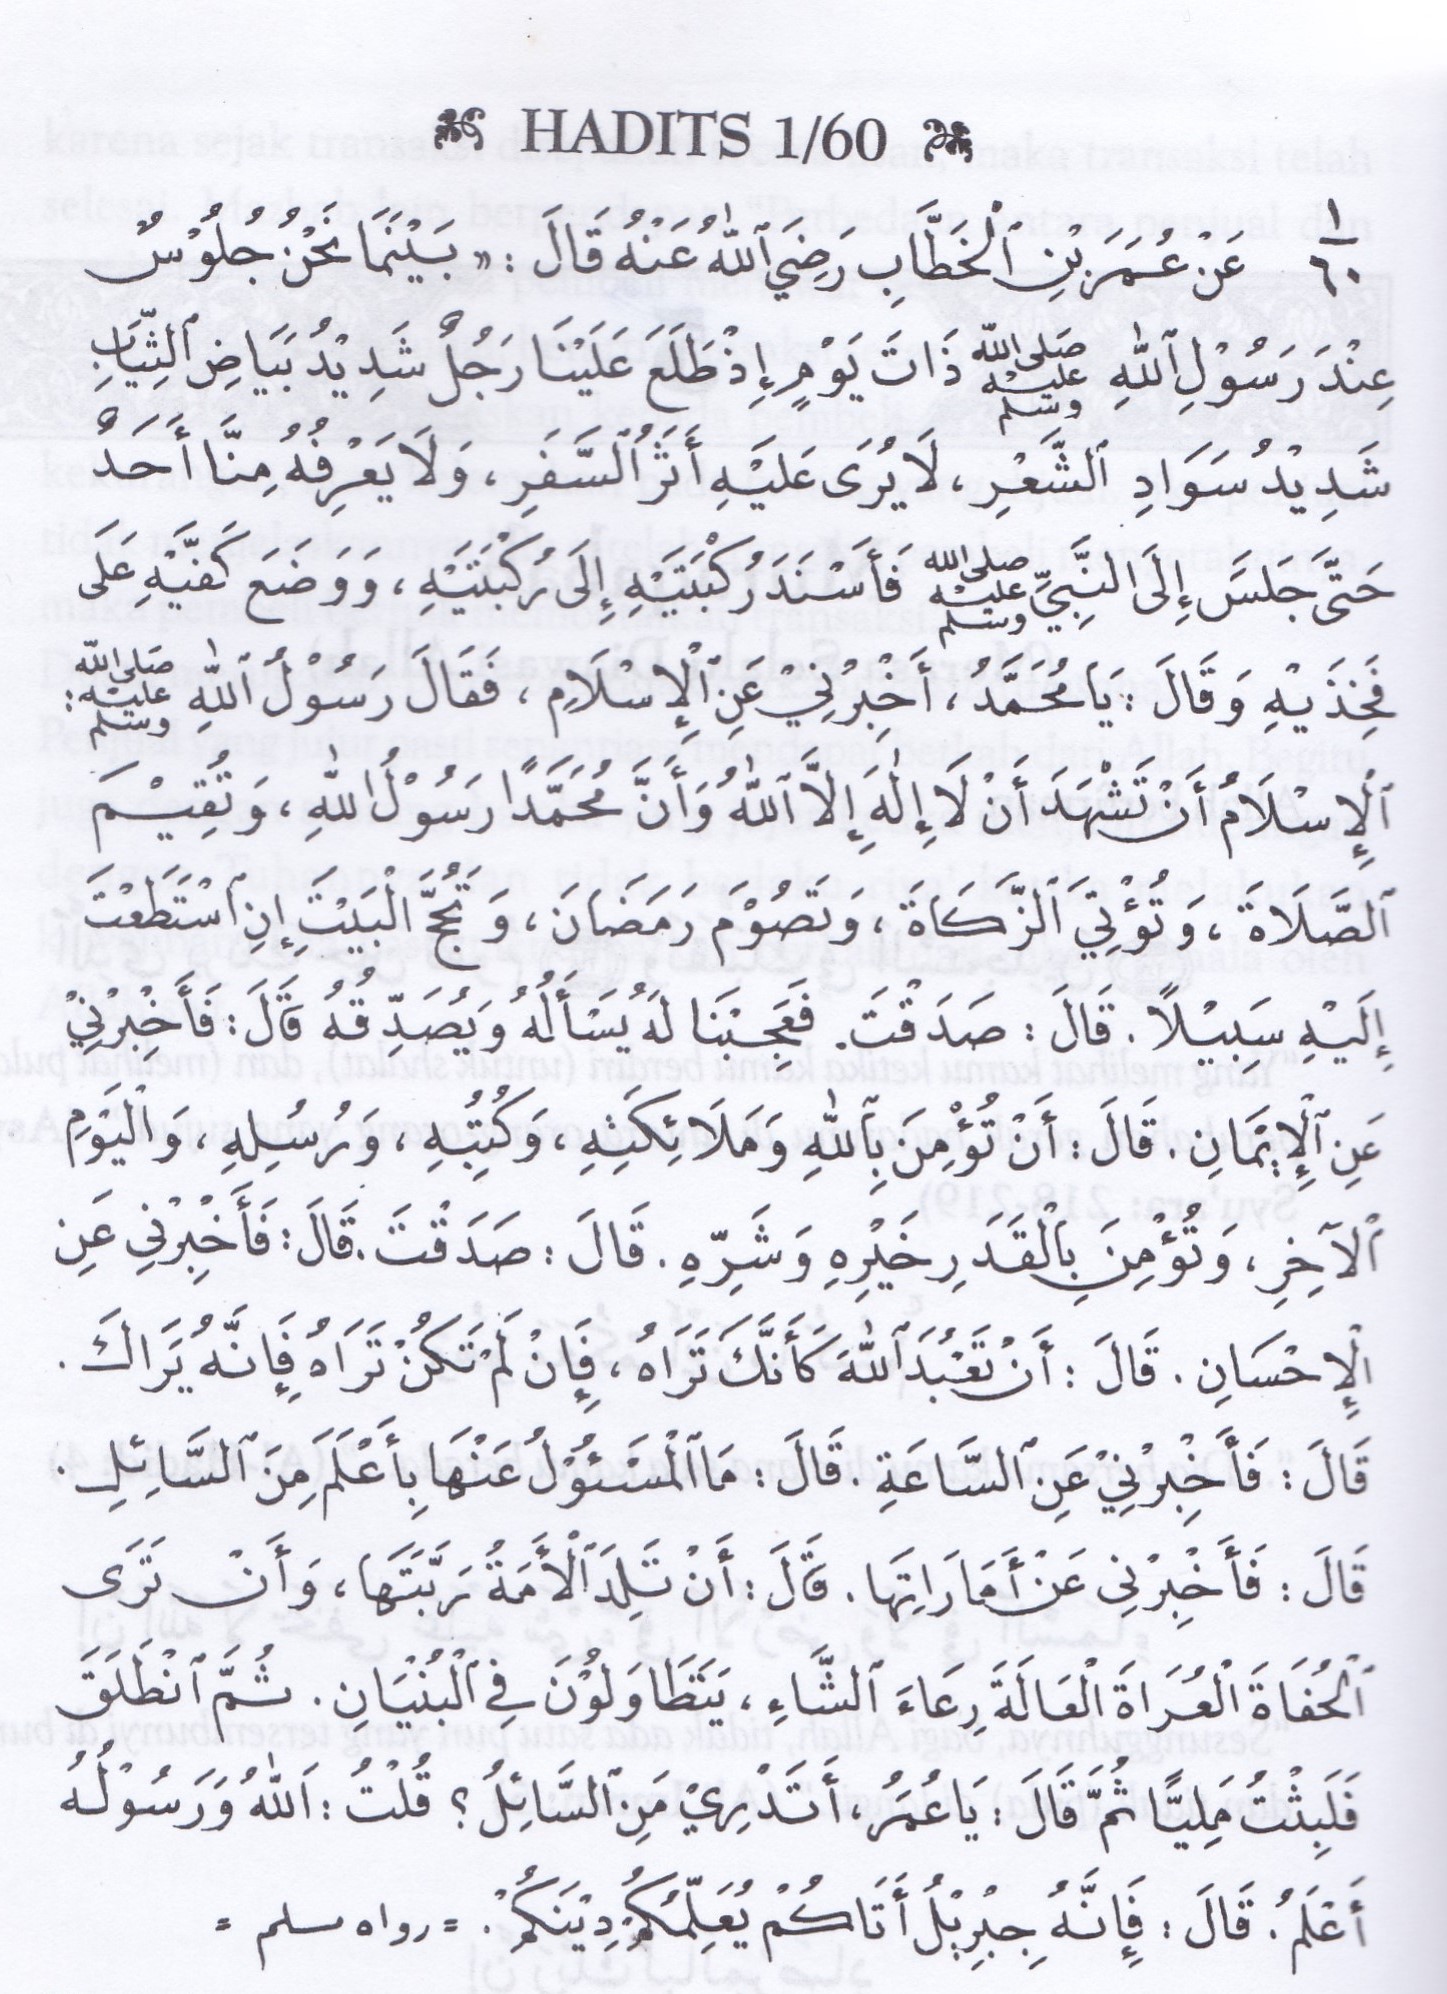 HADITS 1/60
١/٦٠ عَنْ عُمَرَ بْنِ ٱلْخَطَّابِ رَضِيَ ٱللّٰهُ عَنْهُ قَالَ : « بَيْنَمَا نَحْنُ جُلُوْسٌ
عِنْدَ رَسُوْلِ ٱللّٰهِ صلى الله عليه وسلم ذَاتَ يَوْمٍ إِذْ طَلَعَ عَلَيْنَا رَجُلٌ شَدِيْدُ بَيَاضِ ٱلثِّيَابِ
شَدِيْدُ سَوَادِ ٱلشَّعْرِ ، لَا يُرَى عَلَيْهِ أَثَرُ ٱلسَّفَرِ ، وَلَا يَعْرِفُهُ مِنَّا أَحَدٌ
حَتَّى جَلَسَ إِلَى النَّبِيِّ صلى الله عليه وسلم فَأَسْنَدَ رُكْبَتَيْهِ إِلَى رُكْبَتَيْهِ ، وَوَضَعَ كَفَّيْهِ عَلَى
فَخِذَيْهِ وَقَالَ : يَا مُحَمَّدُ ، أَخْبِرْنِيْ عَنِ ٱلْإِسْلَامِ ، فَقَالَ رَسُوْلُ ٱللّٰهِ صلى الله عليه وسلم :
ٱلْإِسْلَامُ أَنْ تَشْهَدَ أَنْ لَا إِلٰهَ إِلَّا ٱللّٰهُ وَأَنَّ مُحَمَّدًا رَسُوْلُ اللّٰهِ ، وَتُقِيْمَ
ٱلصَّلَاةَ ، وَتُؤْتِيَ ٱلزَّكَاةَ ، وَتَصُوْمَ رَمَضَانَ ، وَتَحُجَّ الْبَيْتَ إِنِ ٱسْتَطَعْتَ
إِلَيْهِ سَبِيْلًا . قَالَ : صَدَقْتَ . فَعَجِبْنَا لَهُ يَسْأَلُهُ وَيُصَدِّقُهُ قَالَ : فَأَخْبِرْنِيْ
عَنِ ٱلْإِيْمَانِ . قَالَ : أَنْ تُؤْمِنَ بِٱللّٰهِ وَمَلَائِكَتِهِ ، وَكُتُبِهِ ، وَرُسُلِهِ ، وَالْيَوْمِ
ٱلْآخِرِ ، وَتُؤْمِنَ بِالْقَدَرِ خَيْرِهِ وَشَرِّهِ . قَالَ : صَدَقْتَ . قَالَ : فَأَخْبِرْنِي عَنِ
الْإِحْسَانِ . قَالَ : أَنْ تَعْبُدَ ٱللّٰهَ كَأَنَّكَ تَرَاهُ ، فَإِنْ لَمْ تَكُنْ تَرَاهُ فَإِنَّهُ يَرَاكَ .
قَالَ : فَأَخْبِرْنِيْ عَنِ ٱلسَّاعَةِ . قَالَ : مَا ٱلْمَسْئُوْلُ عَنْهَا بِأَعْلَمَ مِنَ ٱلسَّائِلِ .
قَالَ : فَأَخْبِرْنِي عَنْ أَمَارَاتِهَا . قَالَ : أَنْ تَلِدَ ٱلْأَمَةُ رَبَّتَهَا ، وَأَنْ تَرَى
ٱلْحُفَاةَ الْعُرَاةَ الْعَالَةَ رِعَاءَ ٱلشَّاءِ ، يَتَطَاوَلُوْنَ فِي ٱلْبُنْيَانِ . ثُمَّ ٱنْطَلَقَ
فَلَبِثْتُ مَلِيًّا ثُمَّ قَالَ : يَا عُمَرُ ، أَتَدْرِيْ مَنِ ٱلسَّائِلُ ؟ قُلْتُ : اَللّٰهُ وَرَسُوْلُهُ
أَعْلَمُ . قَالَ : فَإِنَّهُ جِبْرِيْلُ أَتَاكُمْ يُعَلِّمُكُمْ دِيْنَكُمْ . = رواه مسلم =